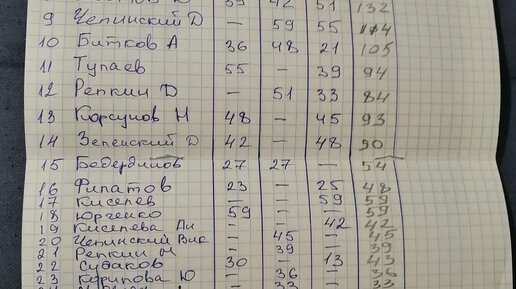 39 42 51 132
9 Чепинский D — 59 55 114
10 Битков А 36 48 21 105
11 Тупаев 55 — 39 94
12 Репкин D — 51 33 84
13 Корсунов Н 48 — 45 93
14 Зепенский D 42 — 48 90
15 Бедердинов 27 27 — 54
16 Филатов 23 — 25 48
17 Киселев — — 59 59
18 Юрченко 59 — — 59
19 Киселева Ан — — 42 42
20 Чепинский Вик — 45 — 45
21 Репкин М — 39 — 39
22 Судаков 30 — 13 43
23 Корипова Ю — 36 — 36
24 — 33 — 33